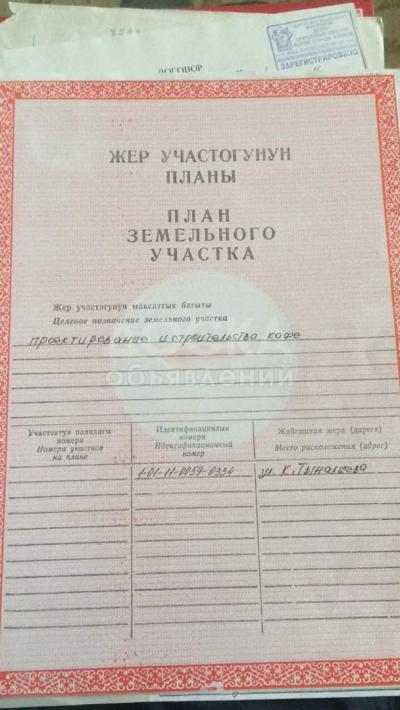 ДОГОВОР
ЗАРЕГИСТРИРОВАНО
ЖЕР УЧАСТОГУНУН
ПЛАНЫ
ПЛАН
ЗЕМЕЛЬНОГО
УЧАСТКА
Жер участогунун максаттык багыты
Целевое назначение земельного участка
проектирование и строительство кафе
объявлений
Участоктун пландагы номера
Номера участков на плане
Идентификациялык номери
Идентификационный номер
Жайгашкан жери (дареги)
Место расположения (адрес)
1-01-11-0059-0334
ул. К. Тыналиева